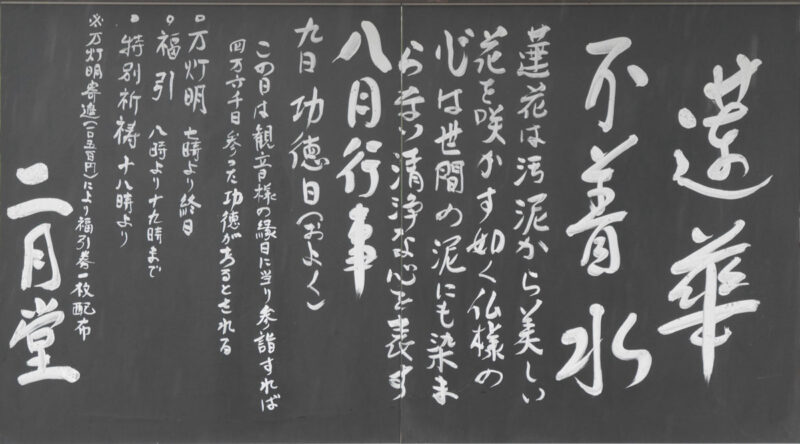 蓮華
不着水
蓮花は汚泥から美しい
花を咲かす如く仏様の
心は世間の泥にも染ま
らない清浄な心を表す
八月行事
九日 功徳日(およく)
この日は観音様の縁日に当り参詣すれば
四万六千日参った功徳があるとされる
○万灯明 七時より終日
○福引 八時より十九時まで
○特別祈祷 十八時より
※万灯明寄進(一口五百円)により福引券一枚配布
二月堂